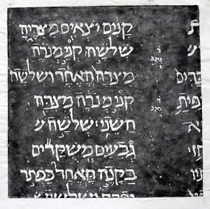 קנים יצאים מצדיה
שלשה קני מנרה
מצדה האחד ושלשה
קני מנרה מצדה
השני שלשה
גבעים משקדים
בקנה האחד כפתר